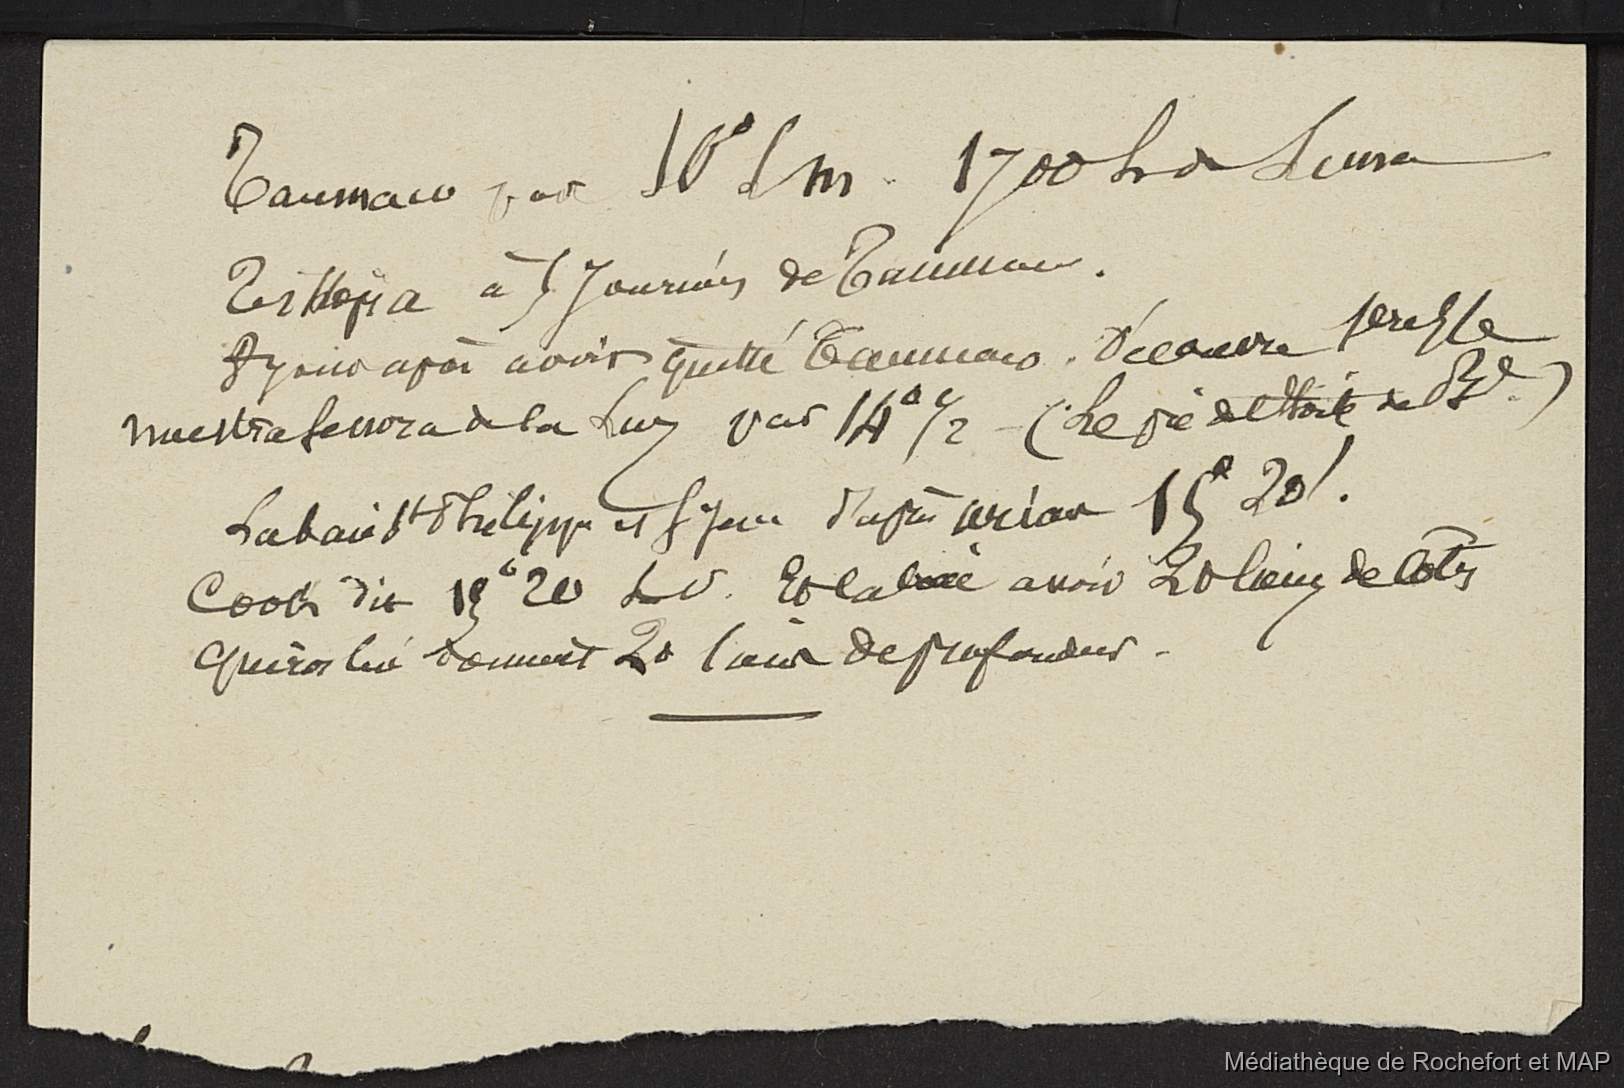 Taumaco par 10° L m. 1700 L de Lima
Tikkopia à 5 journées de Taumaco.
8 jours après avoir quitté Taumaco. Découvre
nuestra senora de la Luz par 14° 1/2 - (Le pic de l'Etoile de Ble.)
La baie St Philippe et St Jean d'après 15° 20'.
Cook dit 15° 20 et la baie avoir 20 lieues de côtes
Quiros lui donnait 20 lieues de profondeur.
Médiathèque de Rochefort et MAP